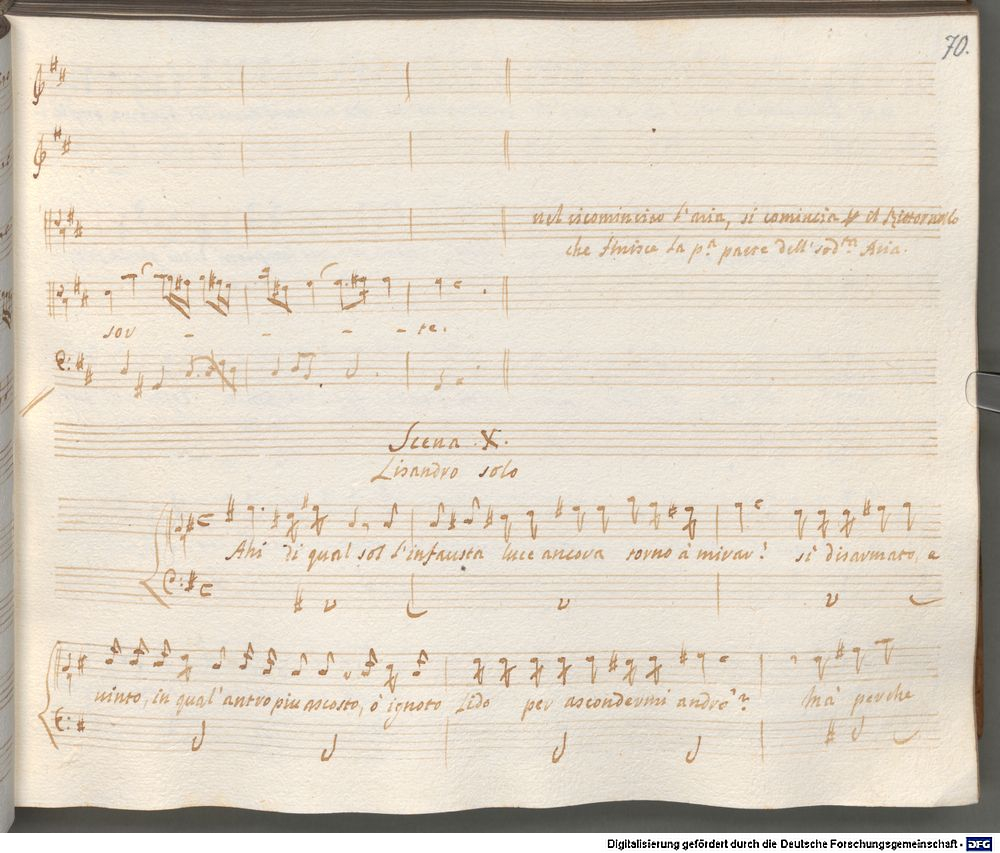 70.
nel ricominciar l'aria, si comincia il Ritornello
che finisce la p.a parte dell' sod.ta Aria.
sor - - - - te.
Scena X.
Lisandro solo
Ahi di qual sol l'infausta luce ancora torno à mirar! sì disarmato, e
vinto, in qual'antro piu ascosto, ò ignoto Lido per ascondermi andrò? Mà perche
Digitalisierung gefördert durch die Deutsche Forschungsgemeinschaft - DFG